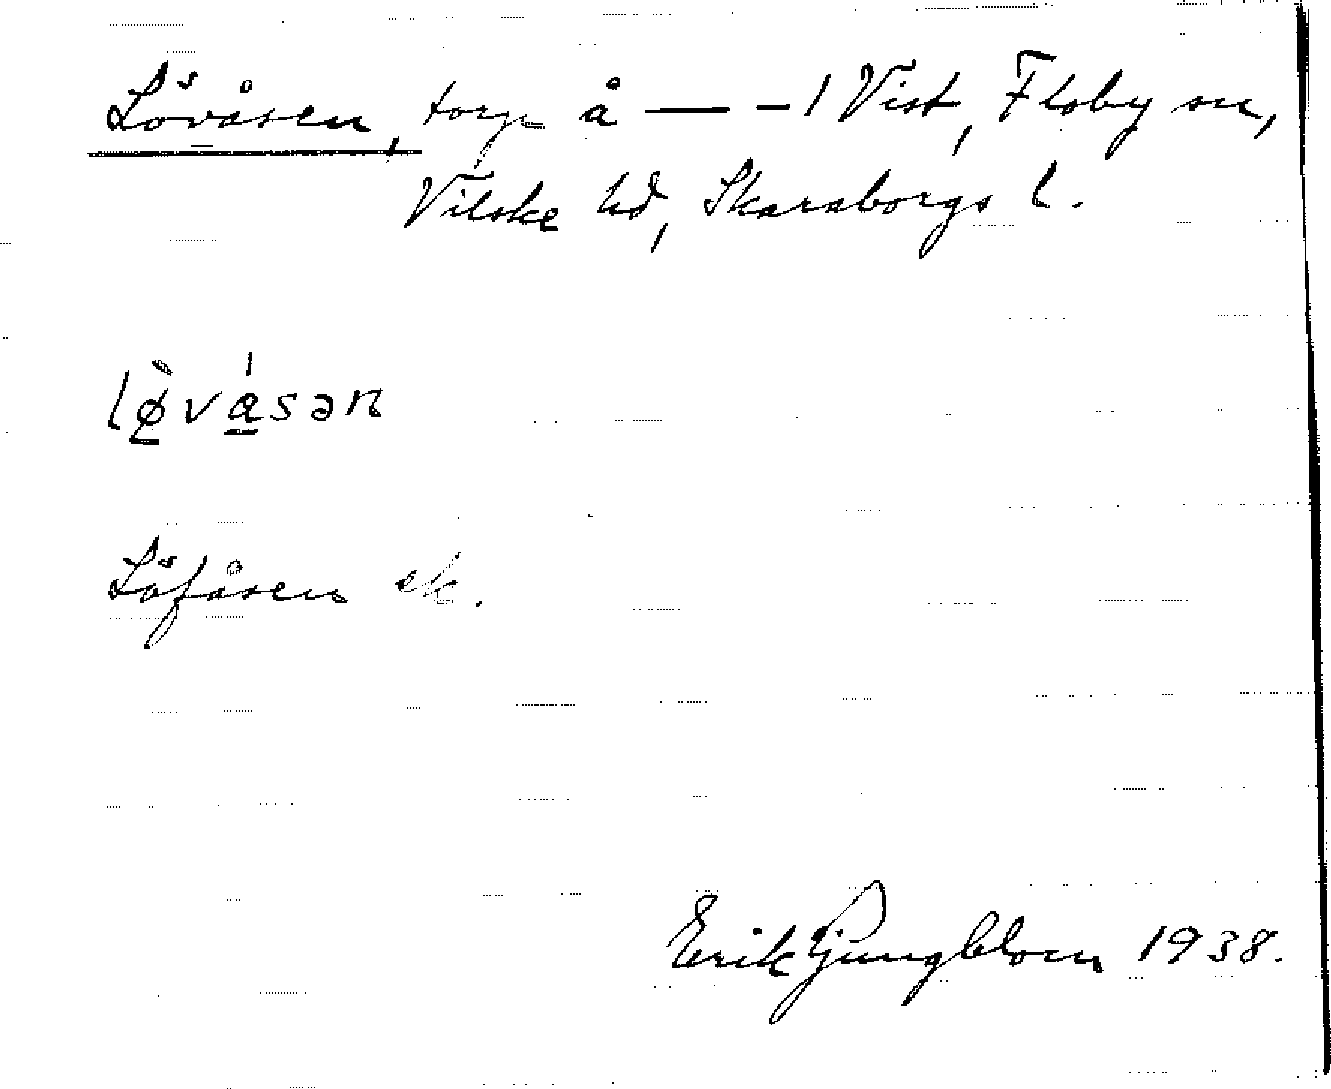 Lövåsen, torp å — – 1 Vist, Floby sn,
Vilske hd, Skaraborgs l.
lø̀vá̱sən
Löfåsen ek.
Erik Ljungblom 1938.